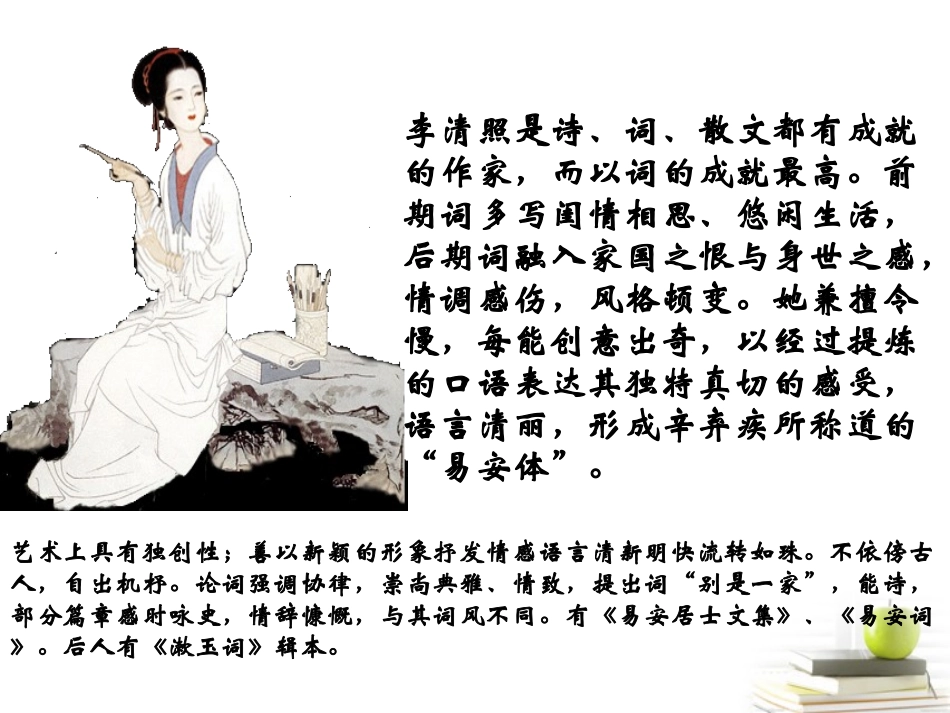 李清照是诗、词、散文都有成就
的作家，而以词的成就最高。前
期词多写闺情相思、悠闲生活，
后期词融入家国之恨与身世之感，
情调感伤，风格顿变。她兼擅令
慢，每能创意出奇，以经过提炼
的口语表达其独特真切的感受，
语言清丽，形成辛弃疾所称道的
“易安体”。
艺术上具有独创性；善以新颖的形象抒发情感语言清新明快流转如珠。不依傍古
人，自出机杼。论词强调协律，崇尚典雅、情致，提出词“别是一家”，能诗，
部分篇章感时咏史，情辞慷慨，与其词风不同。有《易安居士文集》、《易安词
》。后人有《漱玉词》辑本。